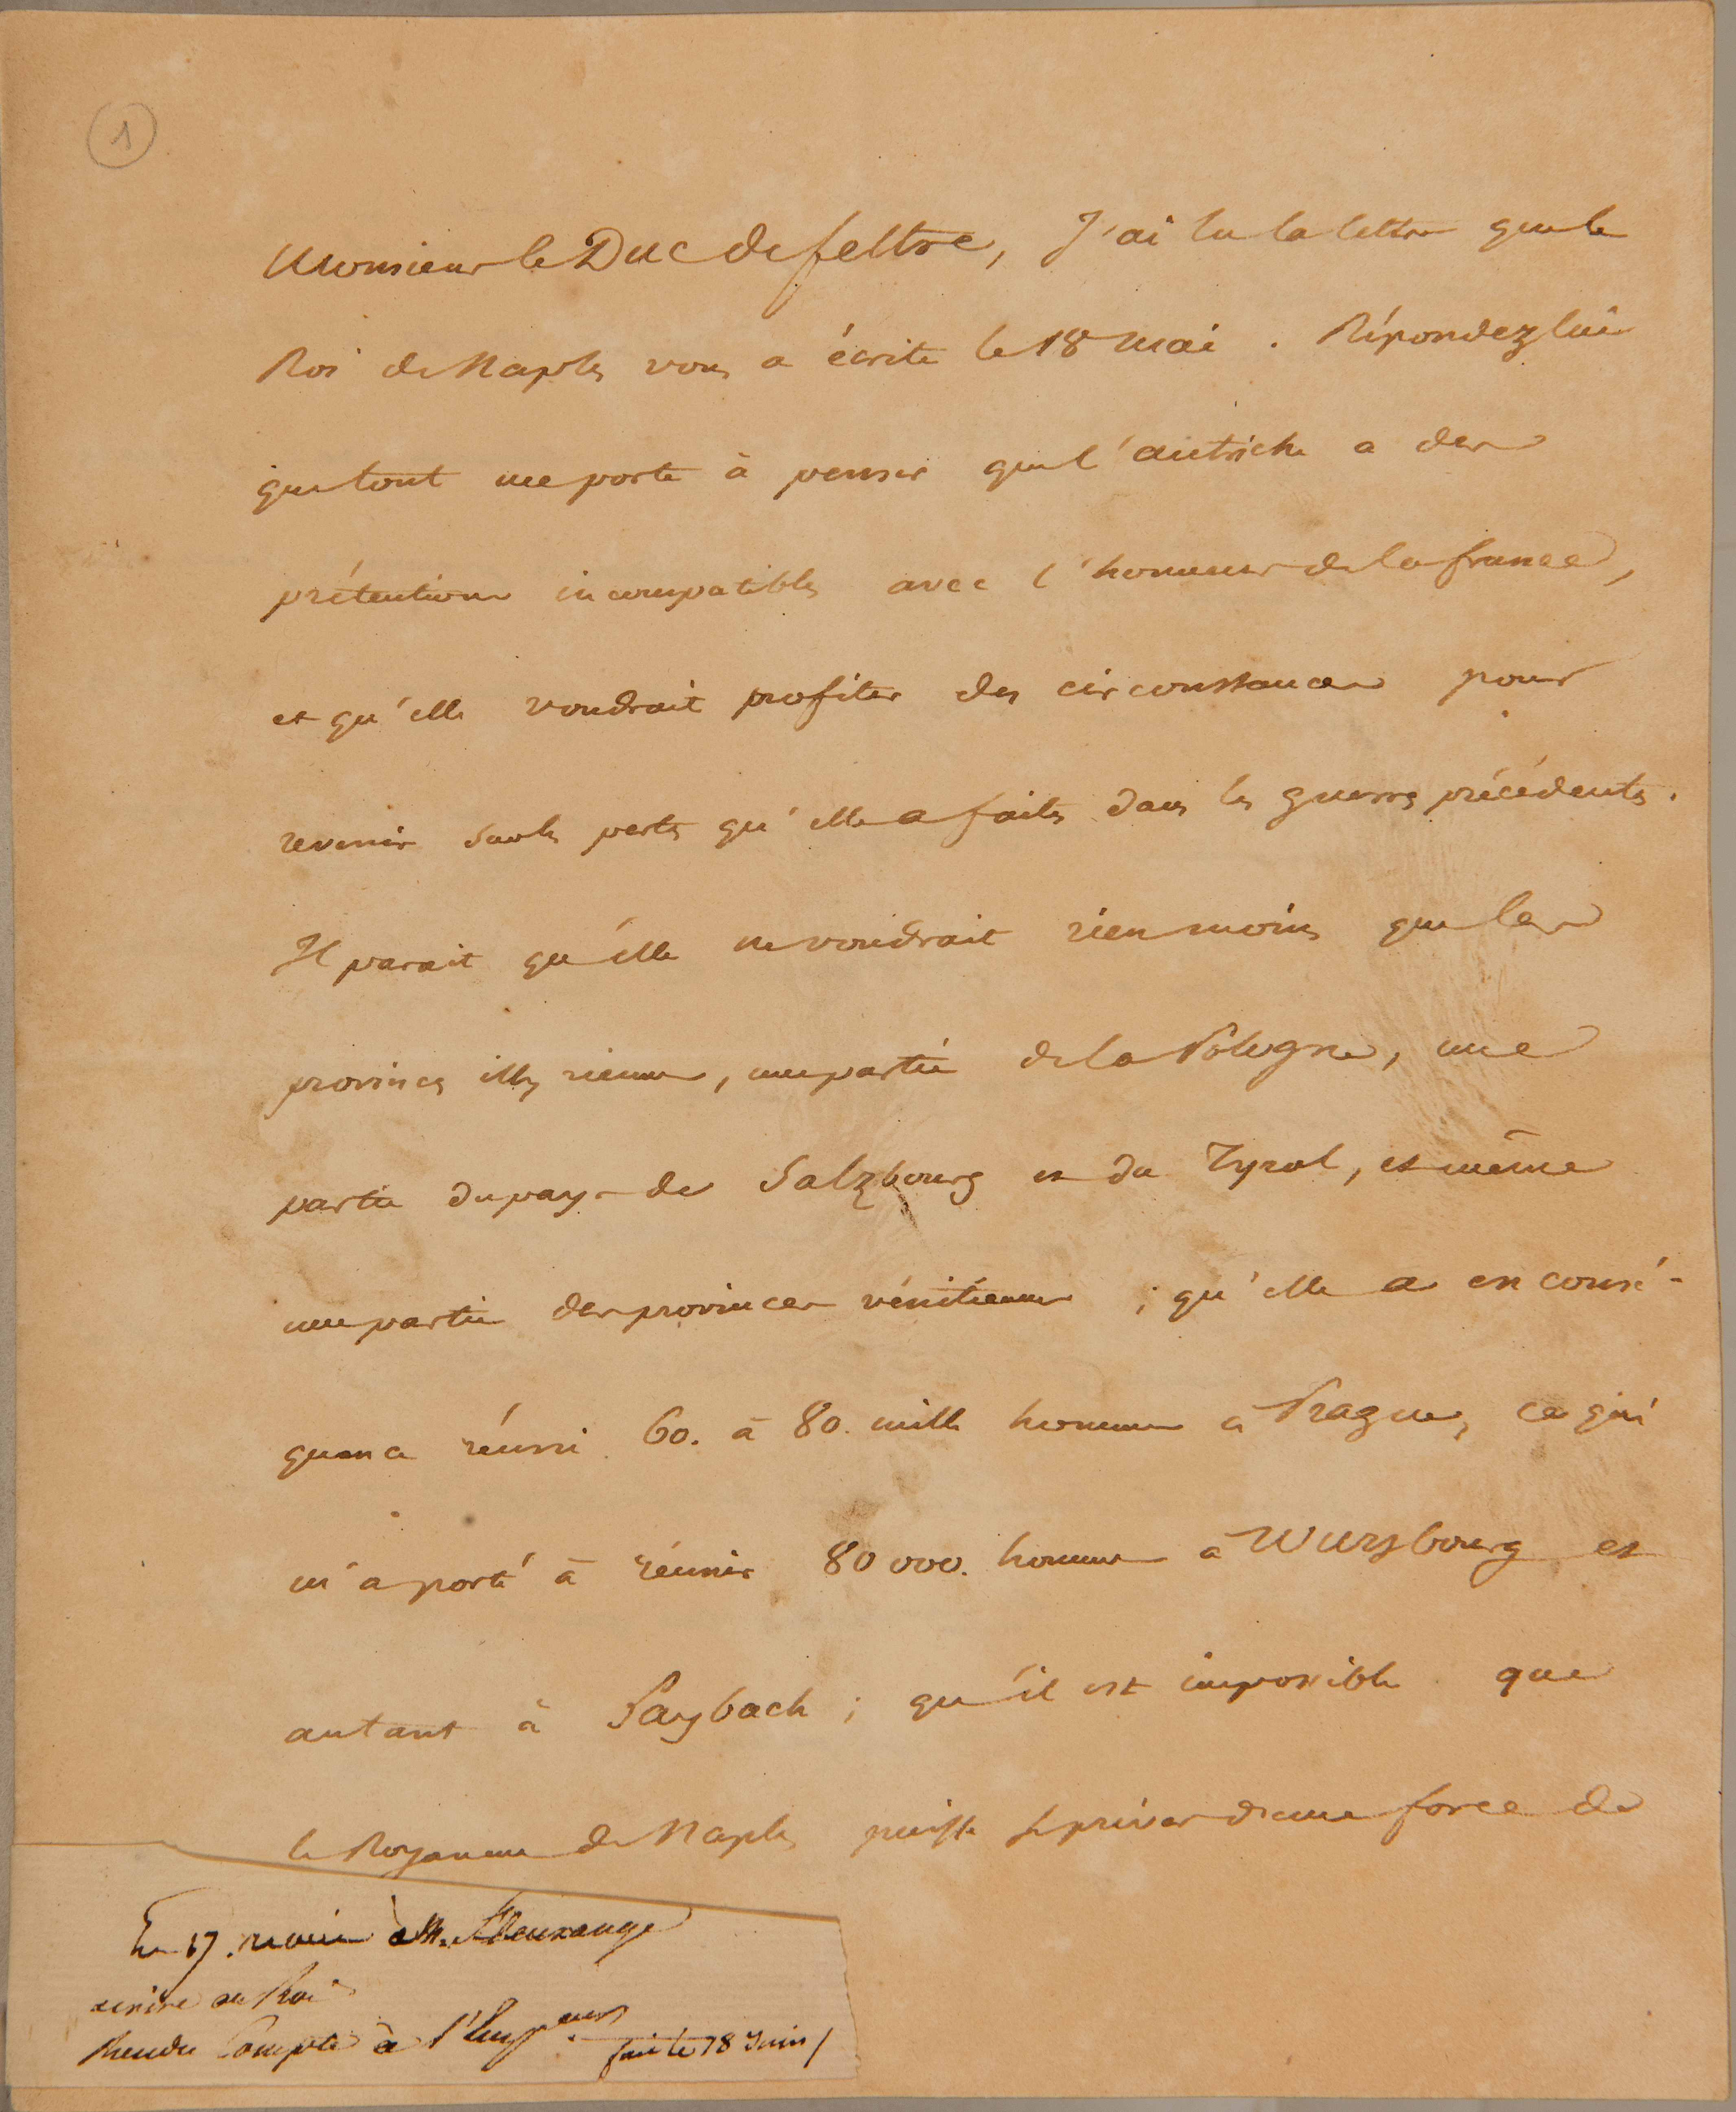 1
Monsieur le Duc de feltre, J'ai lu la lettre que le
Roi de Naples vous a écrite le 18 mai. Répondez lui
que tout me porte à penser que l'autriche a des
prétentions incompatibles avec l'honneur de la france,
et qu'elle voudrait profiter des circonstances pour
revenir sur les pertes qu'elle a faites dans les guerres précédentes.
Il parait qu'elle ne voudrait rien moins que les
provinces illyriennes, une partie de la Pologne, une
partie du pays de Salzbourg et du Tyrol, et même
une partie des provinces vénitiennes ; qu'elle a en consé-
quence réuni 60. à 80. mille hommes à Prague, ce qui
m'a porté à réunir 80 000. hommes à Wurzbourg et
autant à Laybach ; qu'il est impossible que
le Royaume de Naples puisse se priver d'une force de
Le 17. remis à M.
écrire au Roi
Rendu Compte à l'Empereur
fait le 18 Juin /